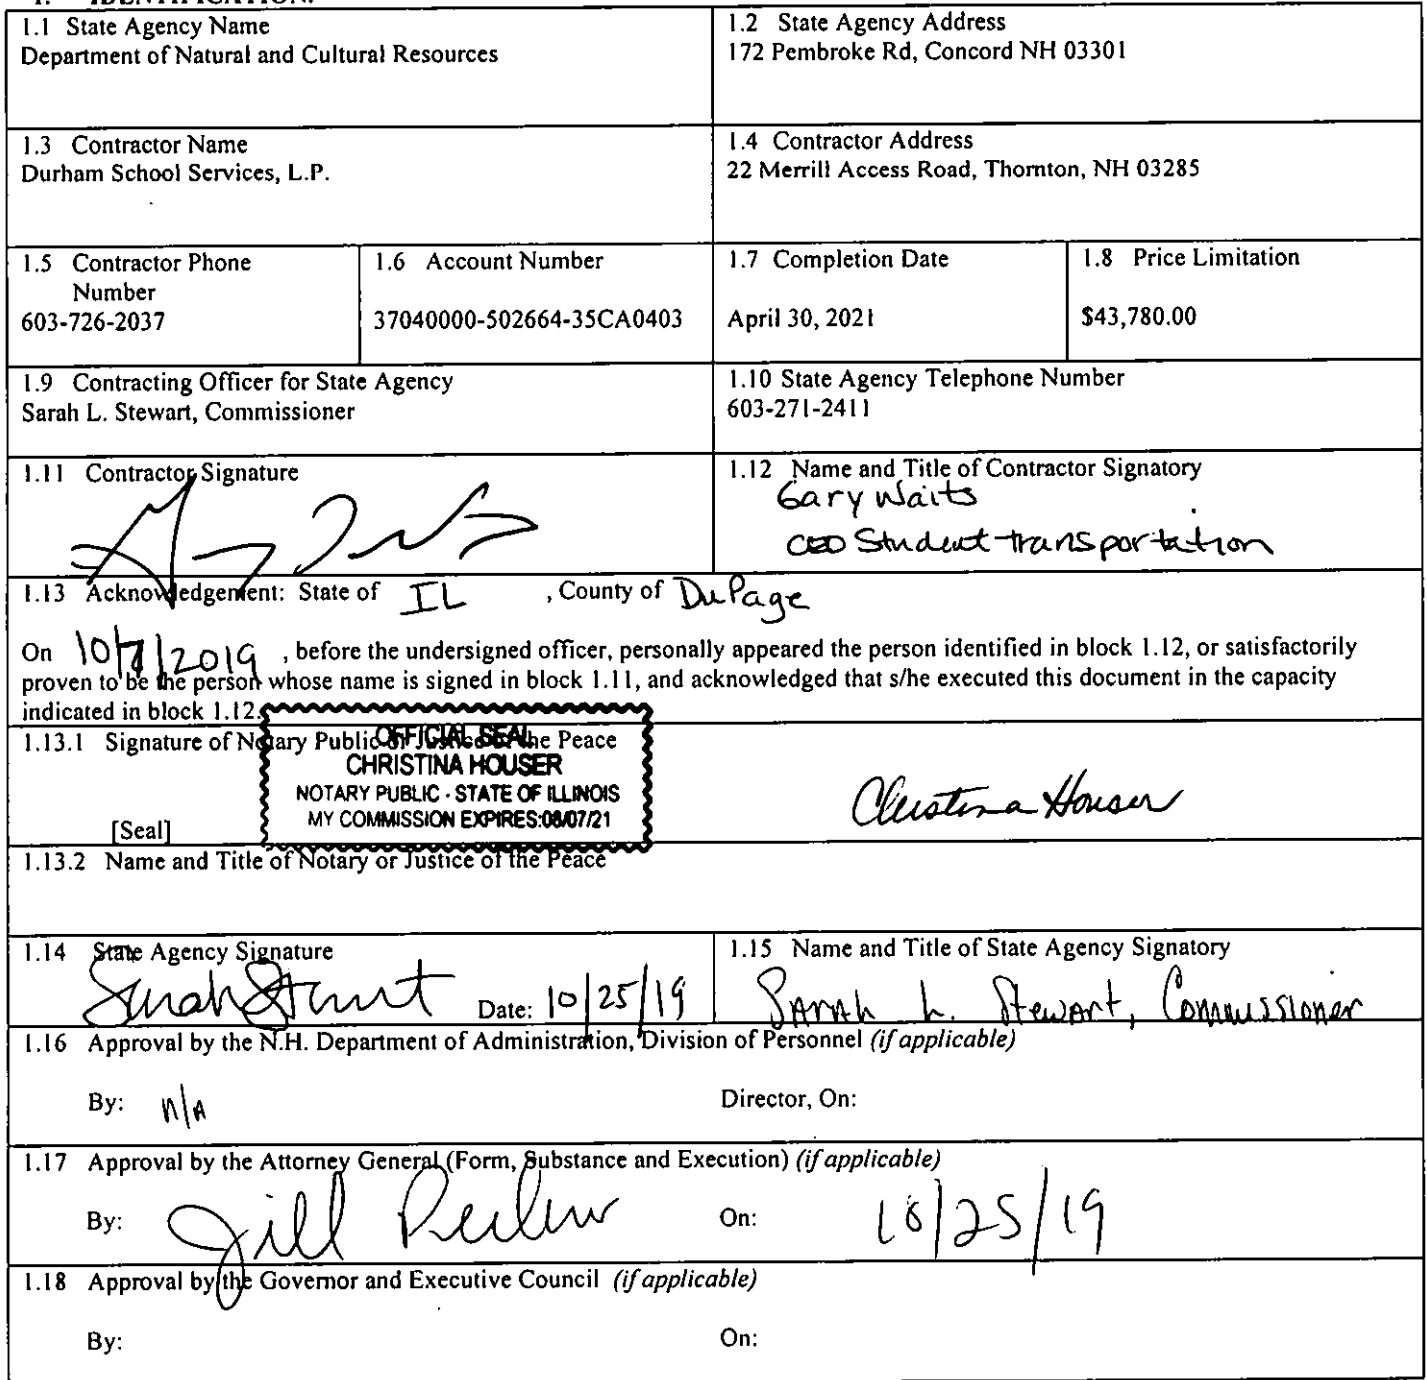 1. IDENTIFICATION.
1.1 State Agency Name
Department of Natural and Cultural Resources
1.2 State Agency Address
172 Pembroke Rd, Concord NH 03301
1.3 Contractor Name
Durham School Services, L.P.
1.4 Contractor Address
22 Merrill Access Road, Thornton, NH 03285
1.5 Contractor Phone
Number
603-726-2037
1.6 Account Number
37040000-502664-35CA0403
1.7 Completion Date
April 30, 2021
1.8 Price Limitation
$43,780.00
1.9 Contracting Officer for State Agency
Sarah L. Stewart, Commissioner
1.10 State Agency Telephone Number
603-271-2411
1.11 Contractor Signature
1.12 Name and Title of Contractor Signatory
Gary Waits
CEO Student transportation
1.13 Acknowledgement: State of IL , County of DuPage
On 10/7/2019 , before the undersigned officer, personally appeared the person identified in block 1.12, or satisfactorily
proven to be the person whose name is signed in block 1.11, and acknowledged that s/he executed this document in the capacity
indicated in block 1.12.
1.13.1 Signature of Notary Public or Justice of the Peace
OFFICIAL SEAL
CHRISTINA HOUSER
NOTARY PUBLIC - STATE OF ILLINOIS
MY COMMISSION EXPIRES:08/07/21
Christina Houser
[Seal]
1.13.2 Name and Title of Notary or Justice of the Peace
1.14 State Agency Signature
Sarah Stewart Date: 10/25/19
1.15 Name and Title of State Agency Signatory
Sarah L. Stewart, Commissioner
1.16 Approval by the N.H. Department of Administration, Division of Personnel (if applicable)
By: n/A Director, On:
1.17 Approval by the Attorney General (Form, Substance and Execution) (if applicable)
By: Jill Perlow On: 10/25/19
1.18 Approval by the Governor and Executive Council (if applicable)
By: On: